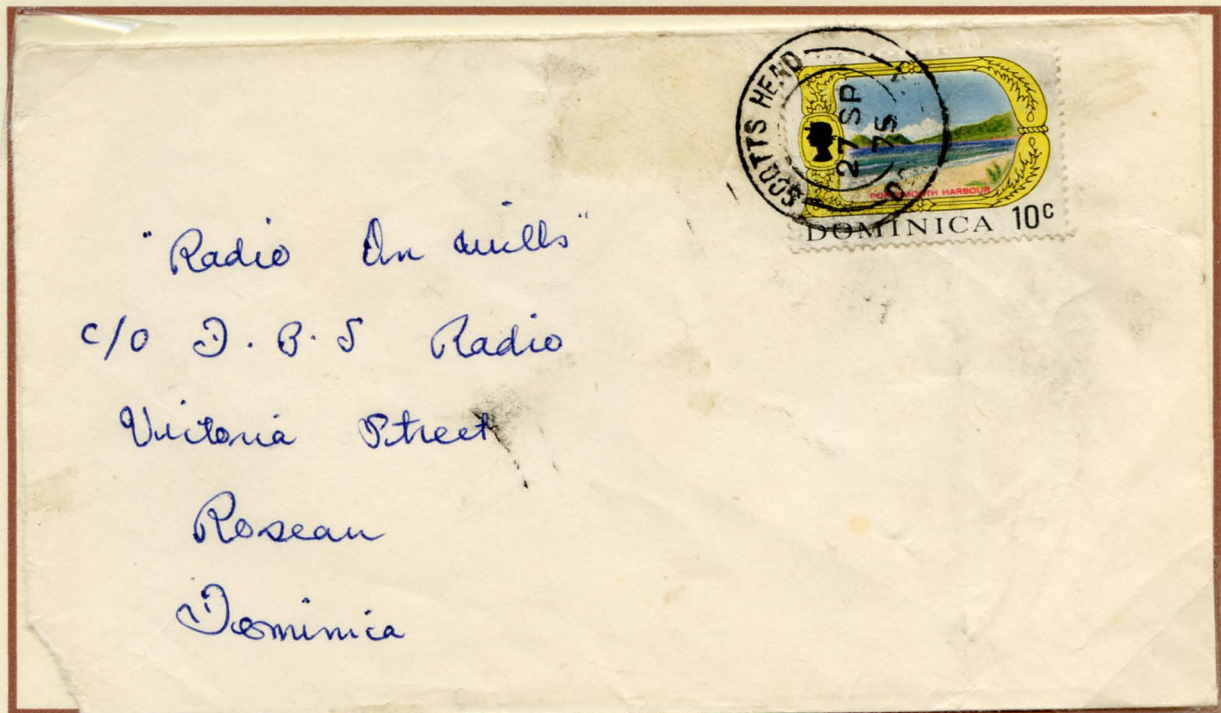 SCOTTS HEAD
27 SP
75
PORTSMOUTH HARBOUR
DOMINICA 10c
"Radio On
c/o D.B.S Radio
Victoria Street
Roseau
Dominica